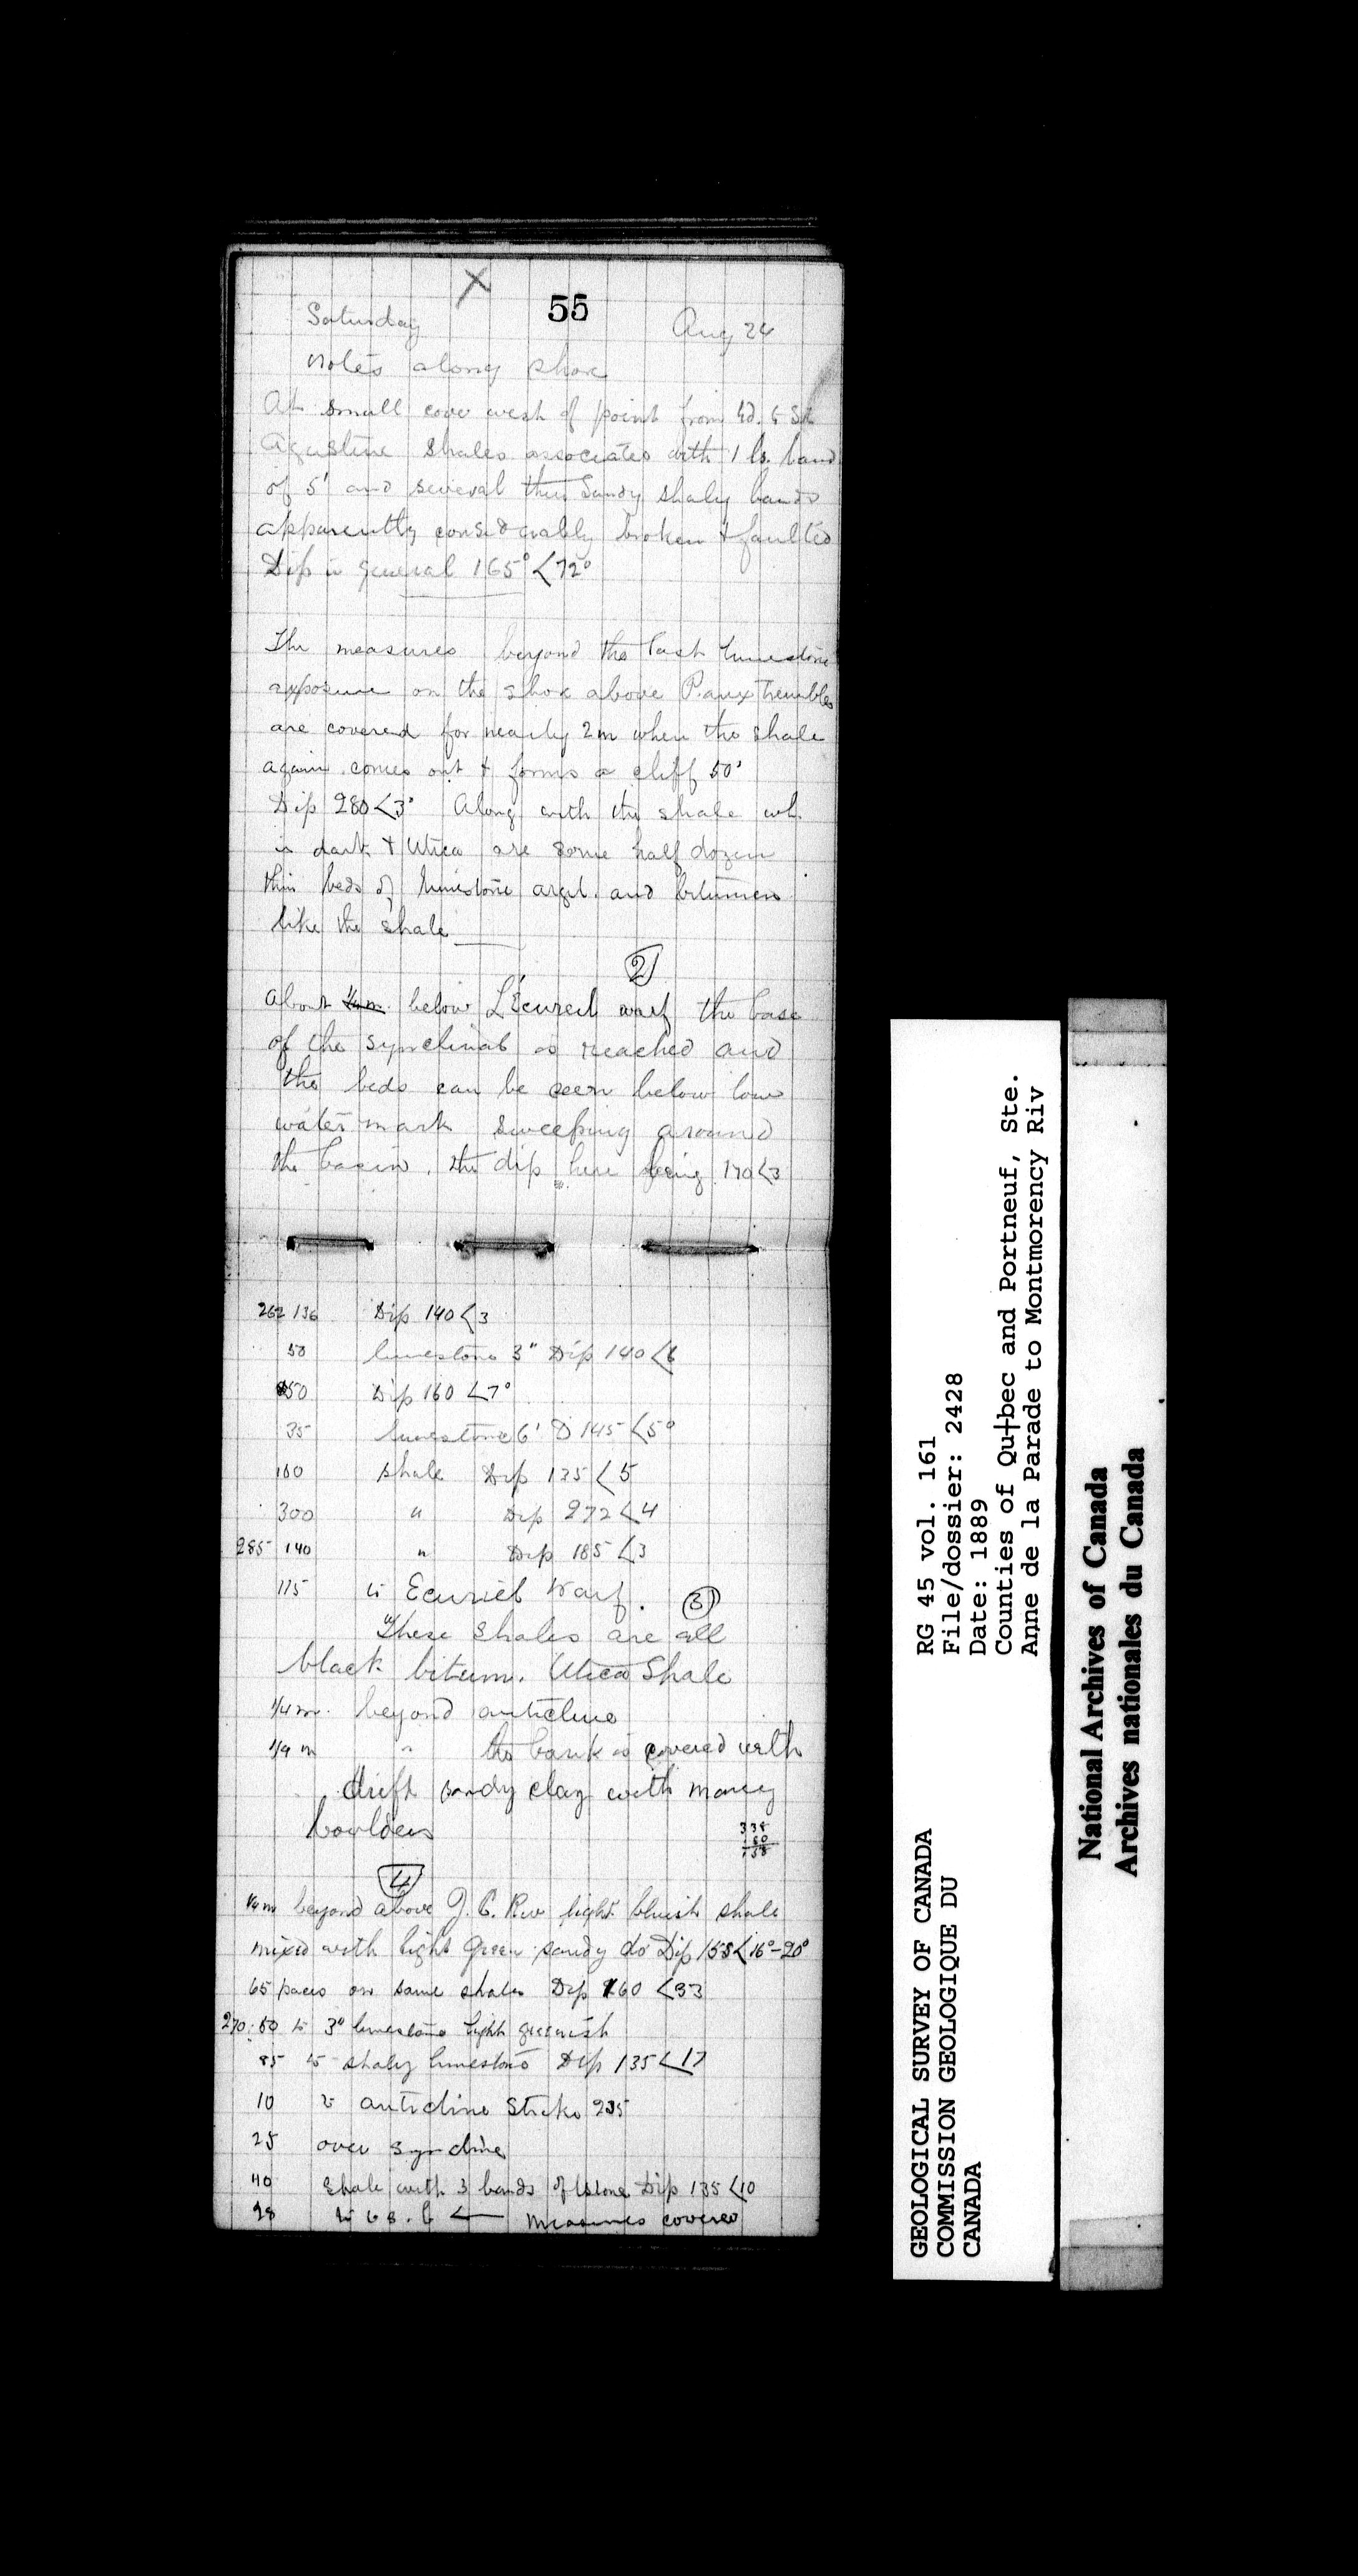 X
55
Saturday Aug 24
Notes along shore
At small cove west of point from Rd. to St
Agustine Shales associated with 1 ls. band
of 5' and several thin Sandy shaly bands
apparently considerably broken & faulted
Dip in general 165° <72°
The measures beyond the last limestone
exposure on the shore above P. aux Trembles
are covered for nearly 2m when the shale
again comes out & forms a cliff 50'
Dip 280<3° Along with the shale wh.
is dark & Utica are some half dozen
thin beds of limestone argil. and bitumen
like the shale
2
About 1/4 m. below L'Ecureil warf the base
of the synclinal is reached and
the beds can be seen below low
water mark sweeping around
the basin. the dip here being 170<3
262 136 Dip 140<3
50 limestone 3" Dip 140<6
50 Dip 160 <7°
35 limestone 6' D 145 <5°
160 shale Dip 135 <5
300 " Dip 272 <4
285 140 " Dip 185 <3
115 to Ecuriel Warf. 3
These shales are all
black bitum. Utica Shale
1/4 m. beyond anticline
1/4 m " the bank is covered with
drift sandy clay with many
boulders
338
180
158
4
1/4 m beyond above J. C. Riv light bluish shale
mixed with light green sandy do Dip 158<16°-20°
65 paces on same shales Dip 160 <33
270. 50 to 3" limestone light greenish
85 to shaly limestone Dip 135<17
10 to anticline Strike 235
25 over syncline
40 Shale with 3 bands of lstone Dip 135<10
28 ← measures covered
GEOLOGICAL SURVEY OF CANADA
COMMISSION GEOLOGIQUE DU
CANADA
RG 45 vol. 161
File/dossier: 2428
Date: 1889
Counties of Qu†bec and Portneuf, Ste.
Anne de la Parade to Montmorency Riv
National Archives of Canada
Archives nationales du Canada